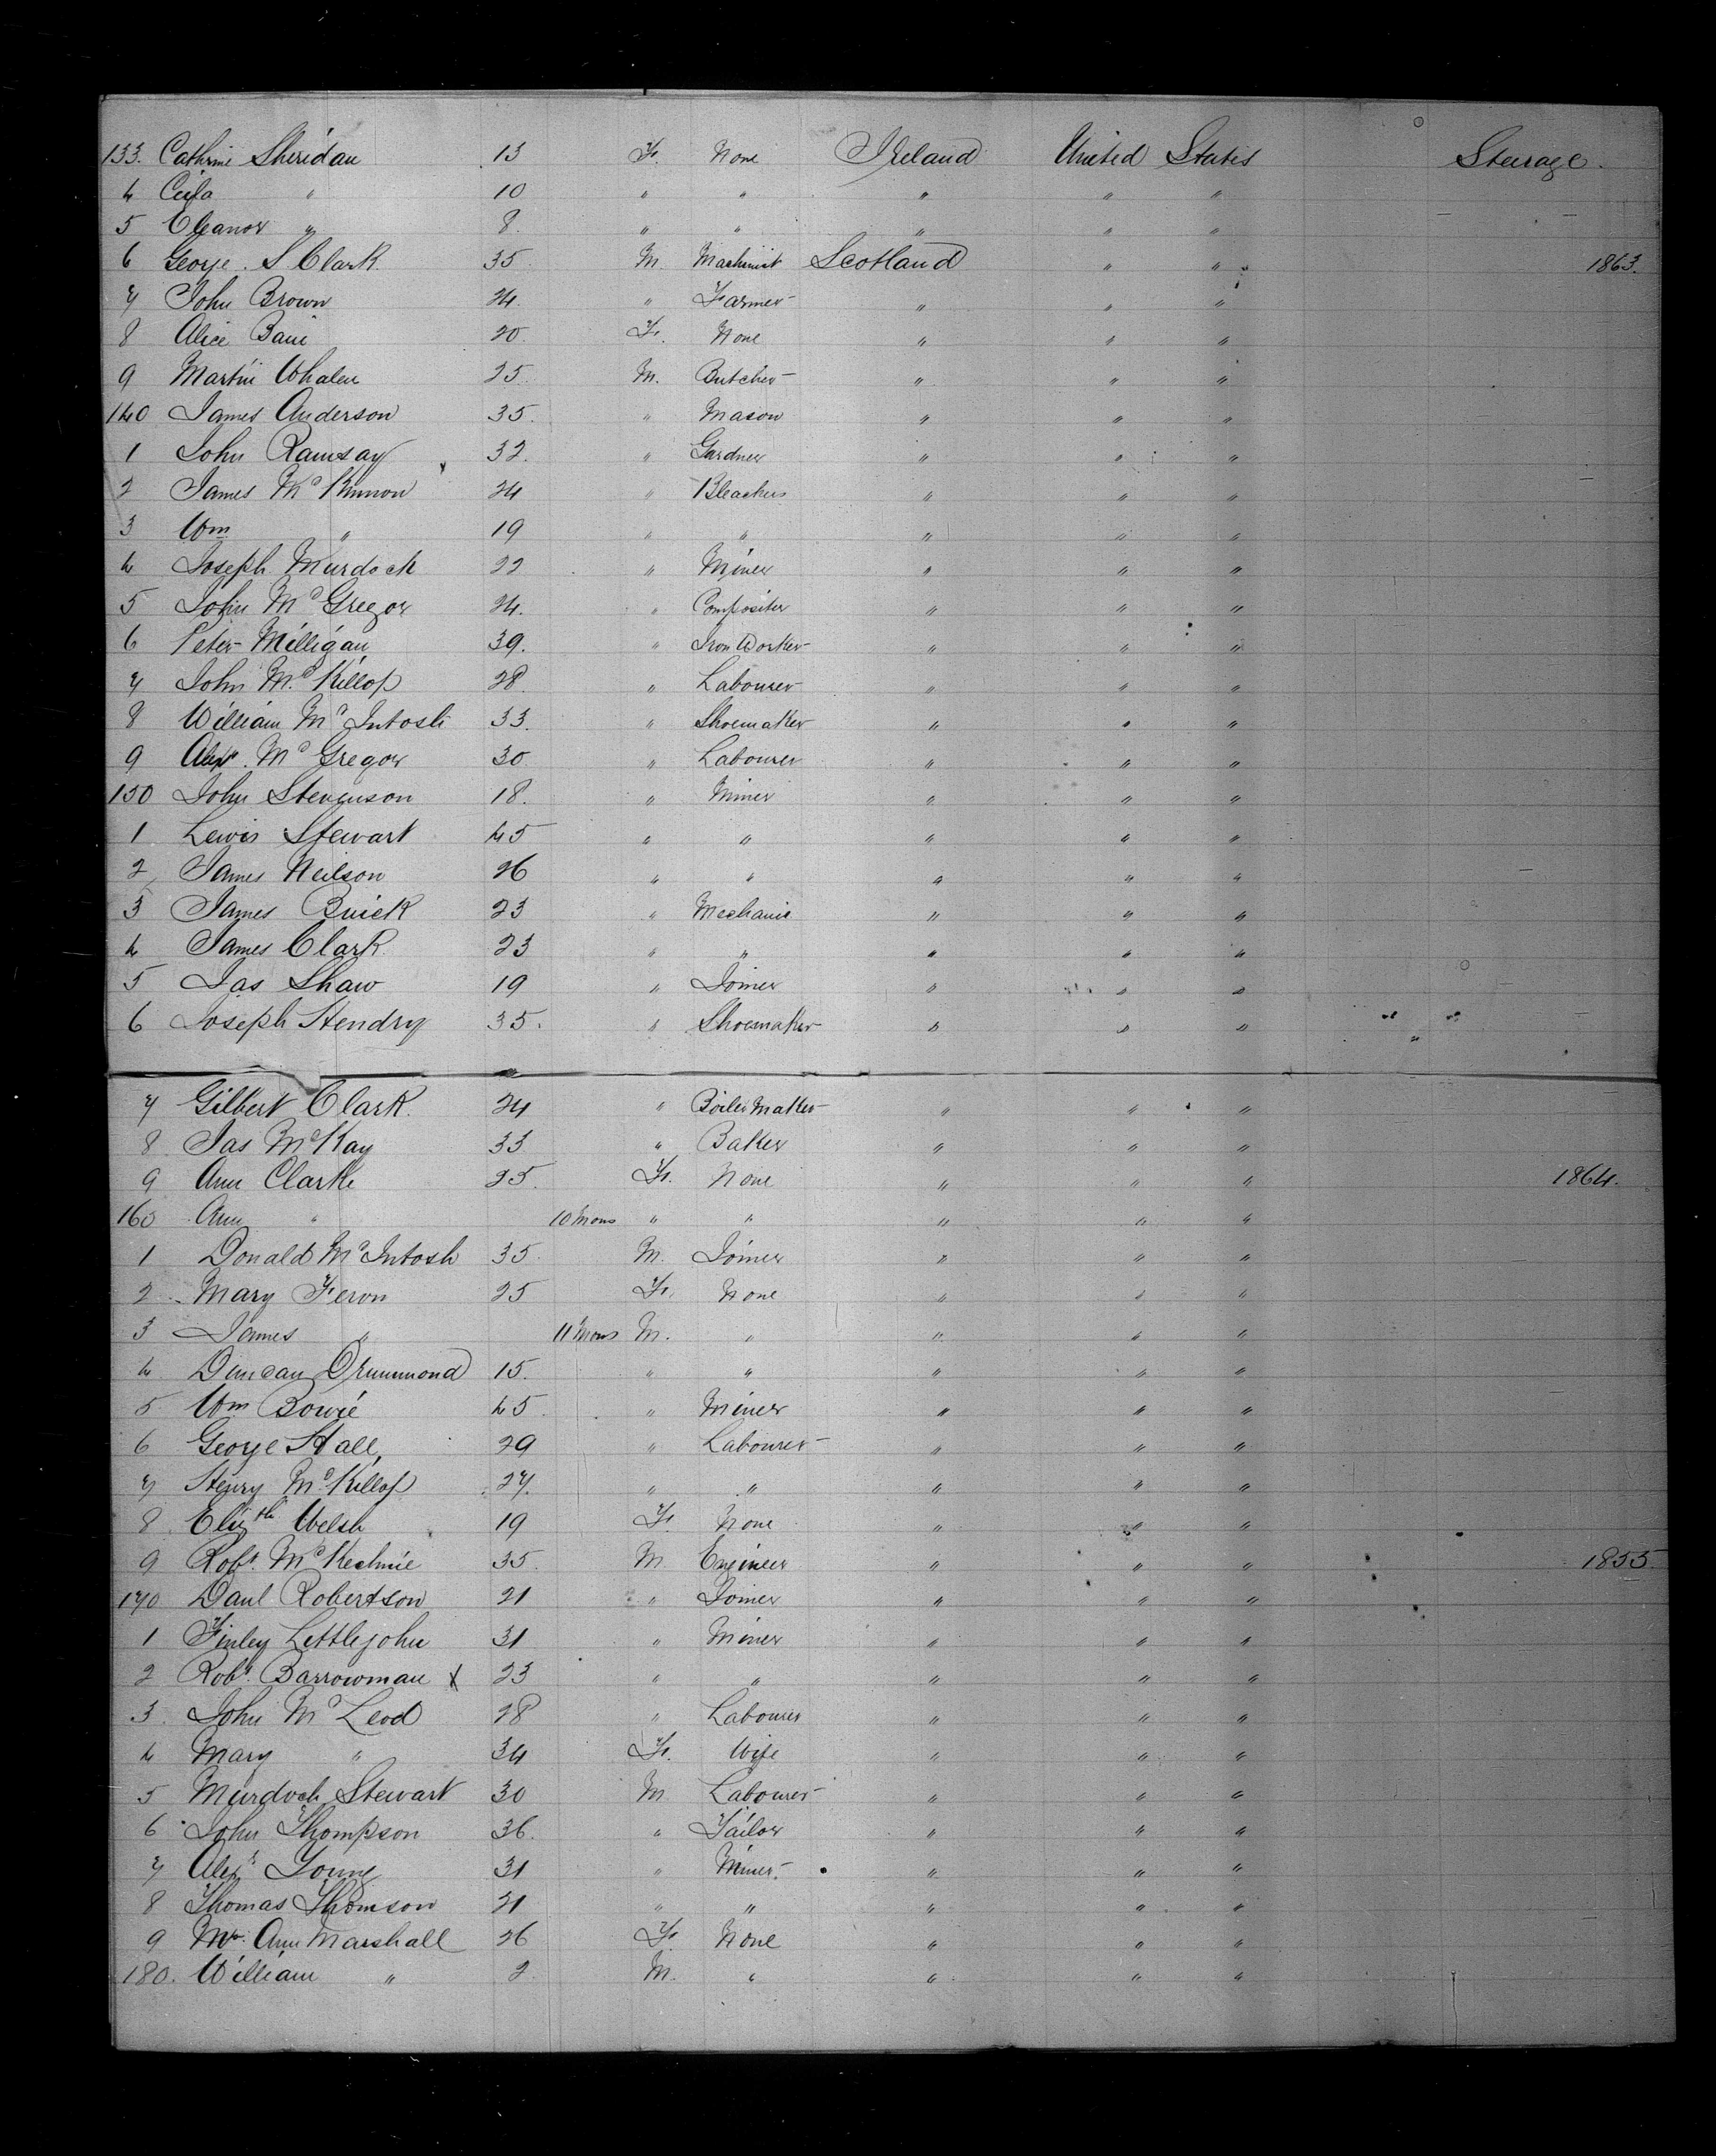 133. Cathrine Sheridan 13 F. None Ireland United States Steerage.
4 " 10 " " " " "
5 Eleanor " 8. " " " " "
6 George. S Clark 35 M. Machinist Scotland " " 1863.
7 John Brown 24. " Farmer " " "
8 Alice 20. F. None " " "
9 Martin Whalen 25 M. Butcher " " "
140 James Anderson 35. " Mason " " "
1 John Ramsay 32. " Gardner " " "
2 James McKinnon 24 " Bleachers " " "
3 Wm " 19 " " " " "
4 Joseph Murdock 22 " Miner " " "
5 John McGregor 24. " Compositer " " "
6 Peter Milligan 39. " Iron Worker " " "
7 John McKillop 28. " Labourer " " "
8 William McIntosh 33. " Shoemaker " " "
9 Alexr. McGregor 30 " Labourer " " "
150 John Stevenson 18. " Miner " " "
1 Lewis Stewart 45 " " " " "
2 James Neilson 26 " " " " "
3 James Buick 23 " Mechanic " " "
4 James Clark 23 " " " " "
5 Jas Shaw 19 " Joiner " " "
6 Joseph Hendry 35. " Shoemaker " " "
7 Gilbert Clark. 24 " Boiler Maker " " "
8 Jas McKay 33 " Baker " " "
9 Ann Clarke 25. F. None " " " 1864.
160 Ann " 10 mons " " " " "
1 Donald McIntosh 35. M. Joiner " " "
2 Mary Feron 25 F. None " " "
3 James " 11 mons M. " " " "
4 Duncan Drummond 15. " " " " "
5 Wm Bowie 45 " Miner " " "
6 George Hall, 29 " Labourer " " "
7 Henry McKillop 27. " " " " "
8 Elizth Welsh 19 F. None " " "
9 Robt. McKechnie 35. M Engineer " " " 1855
170 Danl Robertson 21 " Joiner " " "
1 Finley Littlejohn 31 " Miner " " "
2 Robt. Barrowman x 23 " " " " "
3. John McLeod 28 " Labourer " " "
4 Mary " 34 F. Wife " " "
5 Murdoch Stewart 30 M Labourer " " "
6 John Thompson 36. " Tailor " " "
7 Alexr Young 31 " Miner. " " "
8 Thomas Thomson 21 " " " " "
9 Mrs. Ann Marshall 26 F. None " " "
180. William " 2. M. " " " "